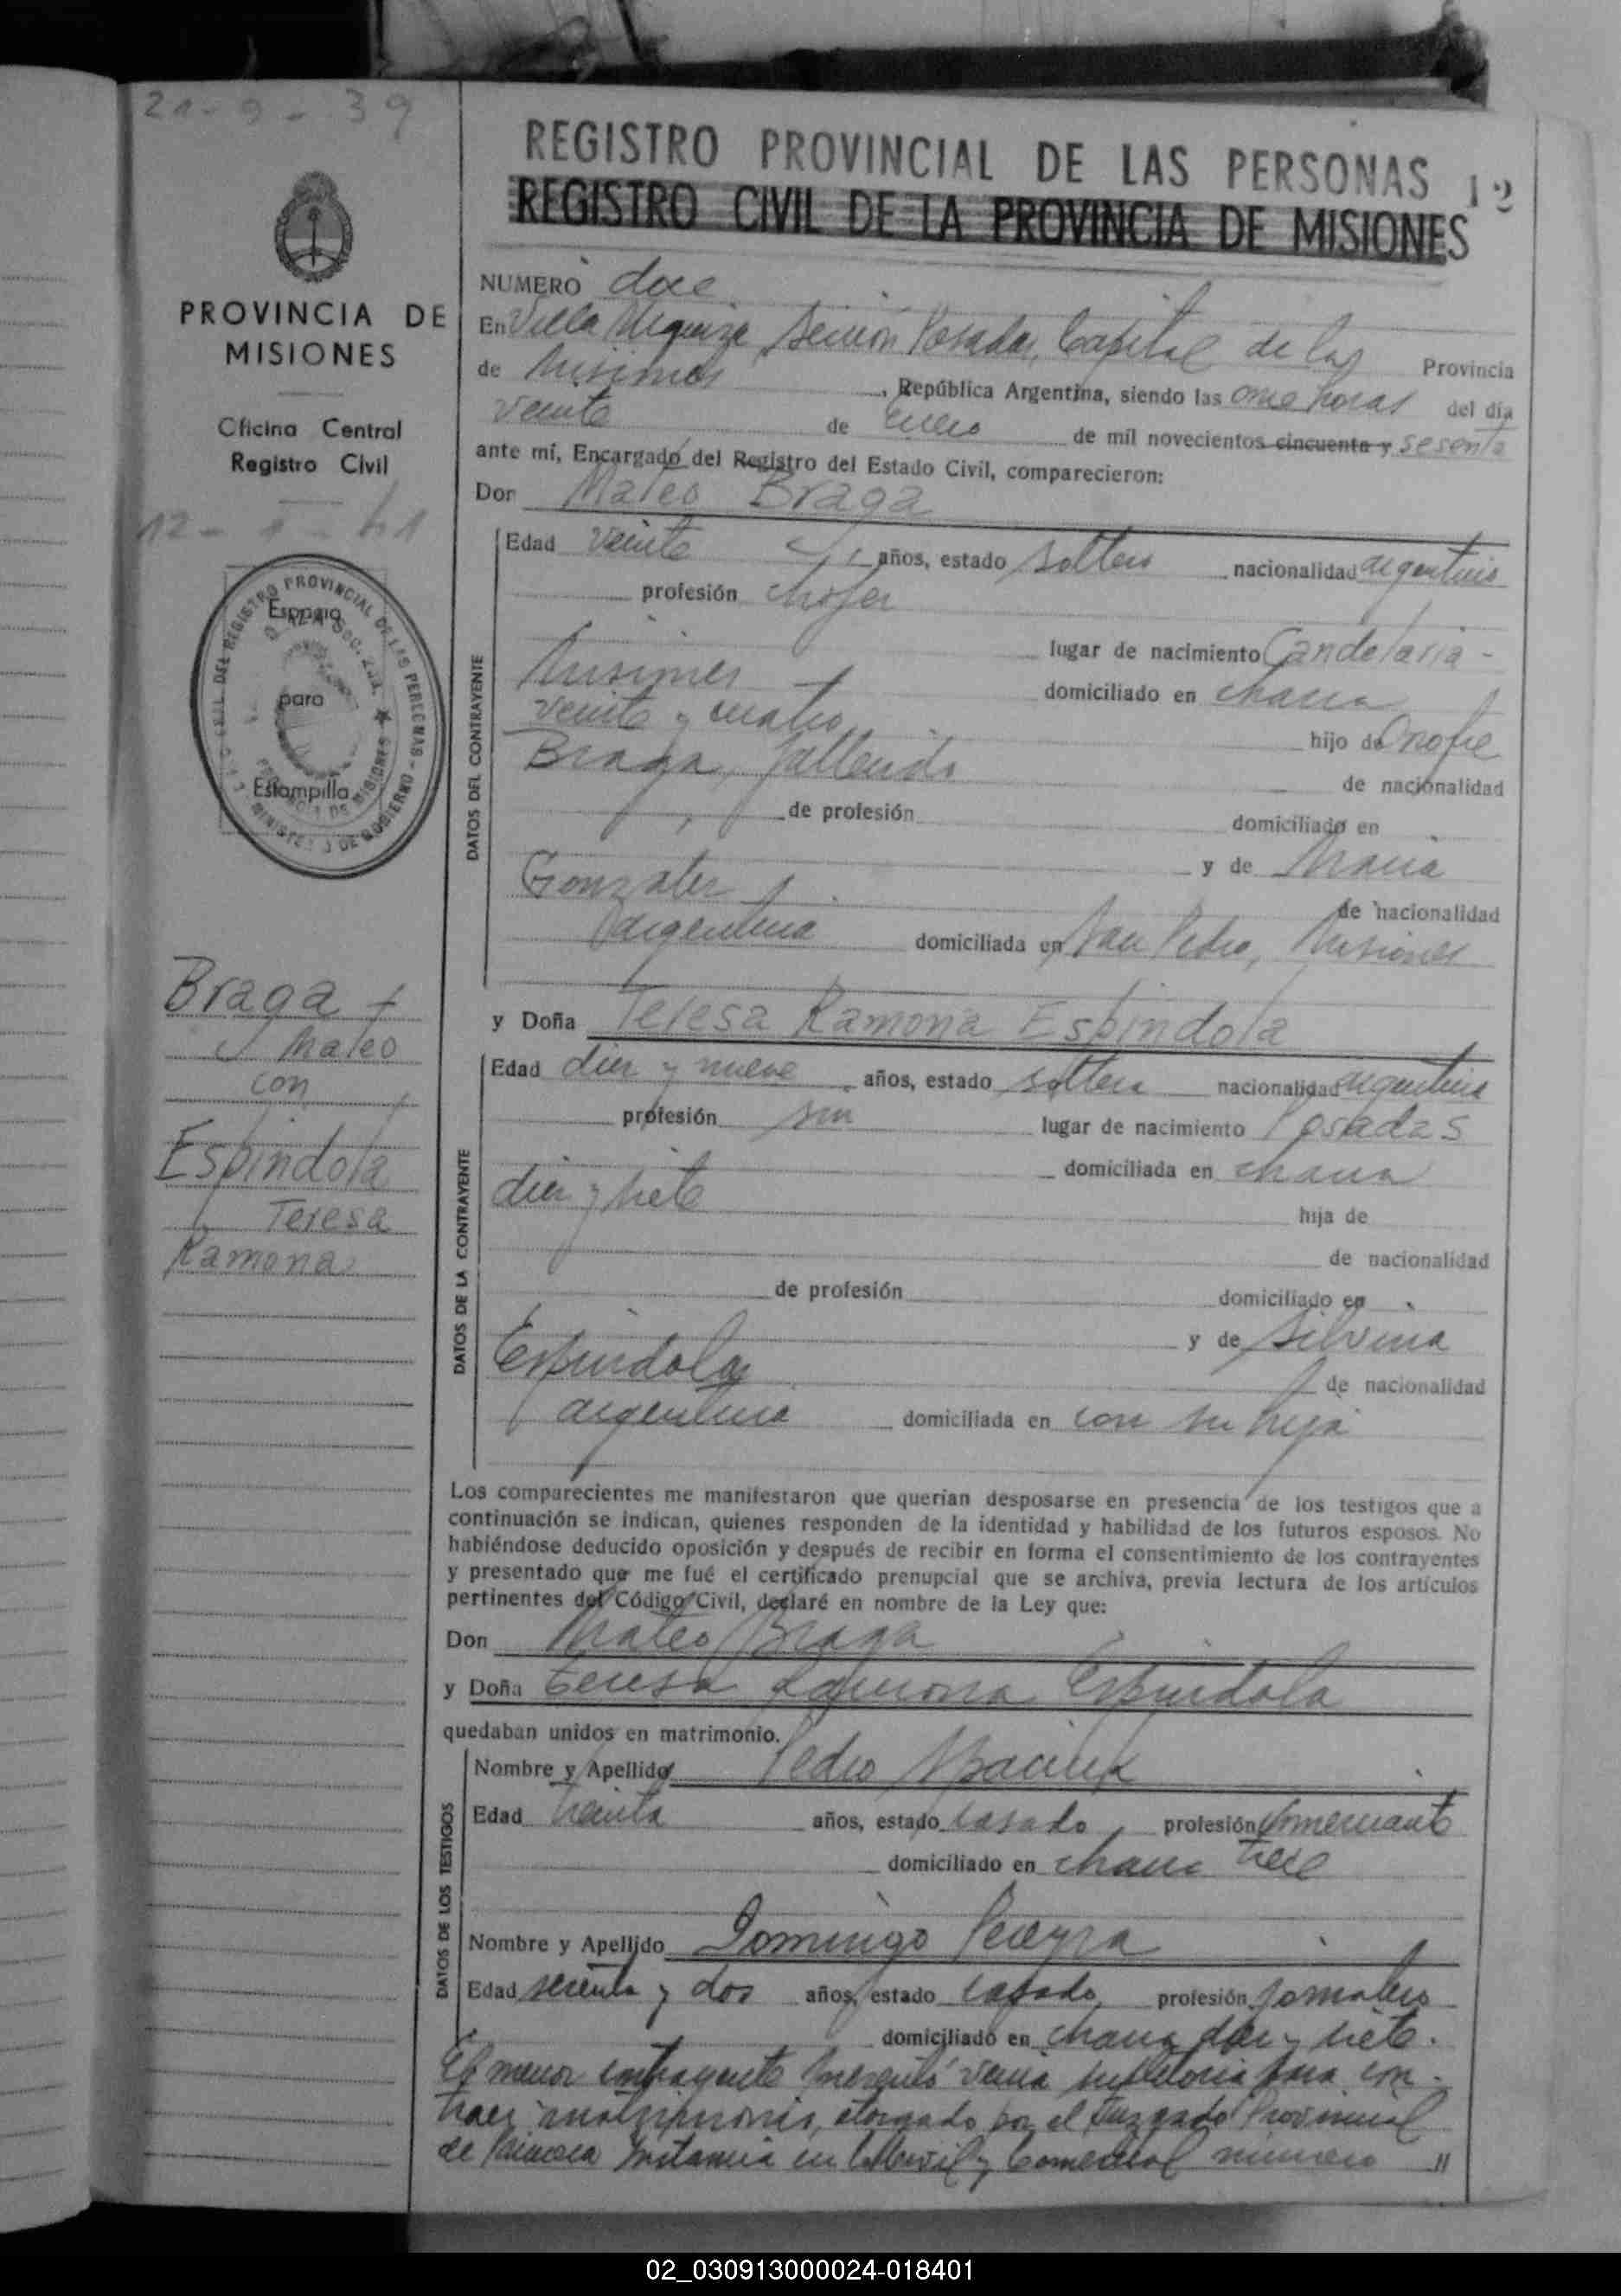 21-9-39
REGISTRO PROVINCIAL DE LAS PERSONAS 12
REGISTRO CIVIL DE LA PROVINCIA DE MISIONES
PROVINCIA DE
MISIONES
Oficina Central
Registro Civil
12-1-41
REGISTRO PROVINCIAL DE LAS PERSONAS
Espacio
para
Estampilla
Braga
Mateo
con
Espindola
Teresa
Ramona
NUMERO doce
En Villa Urquiza Sección Posadas, Capital de las Provincia
de Misiones, República Argentina, siendo las once horas del día
veinte de Enero de mil novecientos cincuenta y sesenta
ante mí, Encargado del Registro del Estado Civil, comparecieron:
Don Mateo Braga
DATOS DEL CONTRAYENTE
Edad veinte años, estado soltero nacionalidad argentino
profesión chofer
lugar de nacimiento Candelaria -
Misiones domiciliado en chacra
veinte y cuatro hijo de Onofre
Braga, fallecido de nacionalidad
de profesión domiciliado en
y de María
Gonzalez de nacionalidad
argentina domiciliada en San Pedro, Misiones
y Doña Teresa Ramona Espindola
DATOS DE LA CONTRAYENTE
Edad diez y nueve años, estado soltera nacionalidad argentina
profesión sin lugar de nacimiento Posadas
domiciliada en chacra
diez y siete hija de
de nacionalidad
de profesión domiciliado en
y de Silvina
Espindola de nacionalidad
argentina domiciliada en con su hija
Los comparecientes me manifestaron que querían desposarse en presencia de los testigos que a
continuación se indican, quienes responden de la identidad y habilidad de los futuros esposos. No
habiéndose deducido oposición y después de recibir en forma el consentimiento de los contrayentes
y presentado que me fué el certificado prenupcial que se archiva, previa lectura de los artículos
pertinentes del Código Civil, declaré en nombre de la Ley que:
Don Mateo Braga
y Doña Teresa Ramona Espindola
quedaban unidos en matrimonio.
DATOS DE LOS TESTIGOS
Nombre y Apellido Pedro
Edad treinta años, estado casado, profesión comerciante
domiciliado en chacra trece
Nombre y Apellido Domingo Pereyra
Edad sesenta y dos años, estado casado, profesión jornalero
domiciliado en chacra diez y siete.
El menor contrayente presentó venia supletoria para con-
traer matrimonio, otorgado por el Juzgado Provincial
de Primera Instancia en lo Civil y Comercial número "
02_030913000024-018401